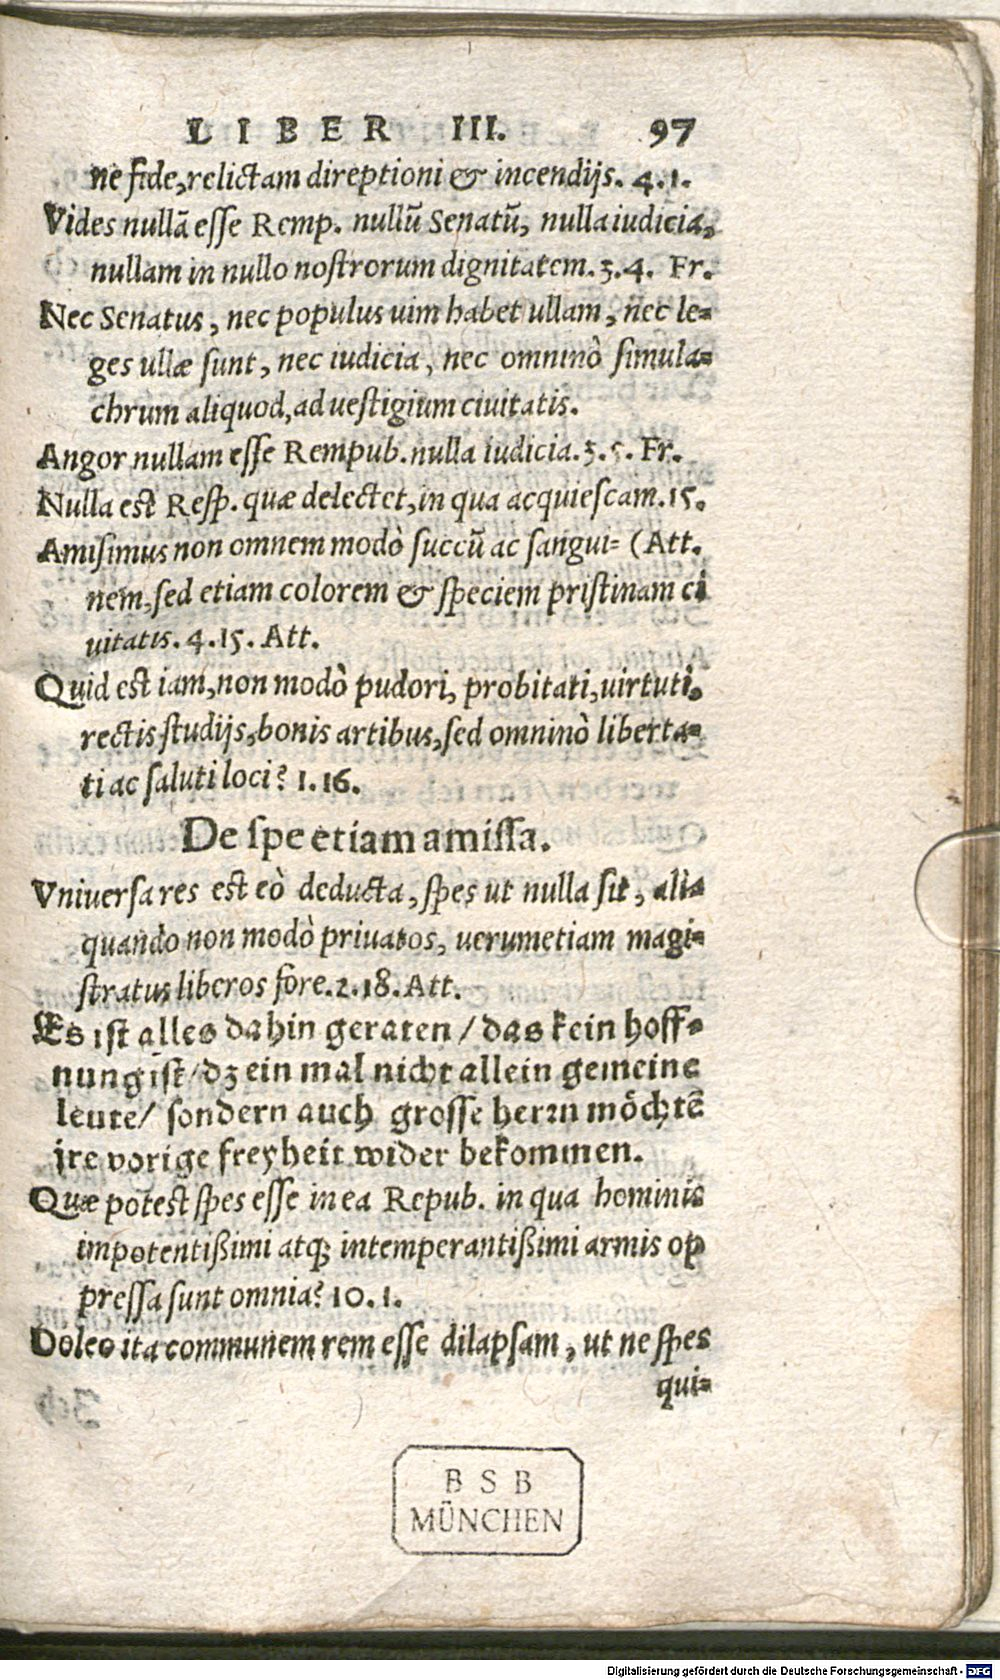 LIBER III. 97
ne fide, relictam direptioni & incendijs. 4.1.
Vides nullā esse Remp. nullū Senatū, nulla iudicia,
nullam in nullo nostrorum dignitatem. 3.4. Fr.
Nec Senatus, nec populus uim habet ullam, nec le=
ges ullæ sunt, nec iudicia, nec omninò simula=
chrum aliquod, ad uestigium ciuitatis.
Angor nullam esse Rempub. nulla iudicia. 3.5. Fr.
Nulla est Resp. quæ delectet, in qua acquiescam. 15.
Amisimus non omnem modò succū ac sangui= (Att.
nem, sed etiam colorem & speciem pristinam ci
uitatis. 4.15. Att.
Quid est iam, non modò pudori, probitati, uirtuti,
rectis studijs, bonis artibus, sed omninò liberta=
ti ac saluti loci? 1.16.
De spe etiam amissa.
Vniuersa res est eò deducta, spes ut nulla sit, ali=
quando non modò priuatos, uerumetiam magi=
stratus liberos fore. 2.18. Att.
Es ist alles dahin geraten / das kein hoff=
nung ist / dz ein mal nicht allein gemeine
leute / sondern auch grosse herrn möchtē
jre vorige freyheit wider bekommen.
Quæ potest spes esse in ea Repub. in qua hominis
impotentißimi atq; intemperantißimi armis op
pressa sunt omnia? 10.1.
Doleo ita communem rem esse dilapsam, ut ne spes
qui=
BSB
MÜNCHEN
Digitalisierung gefördert durch die Deutsche Forschungsgemeinschaft - DFG